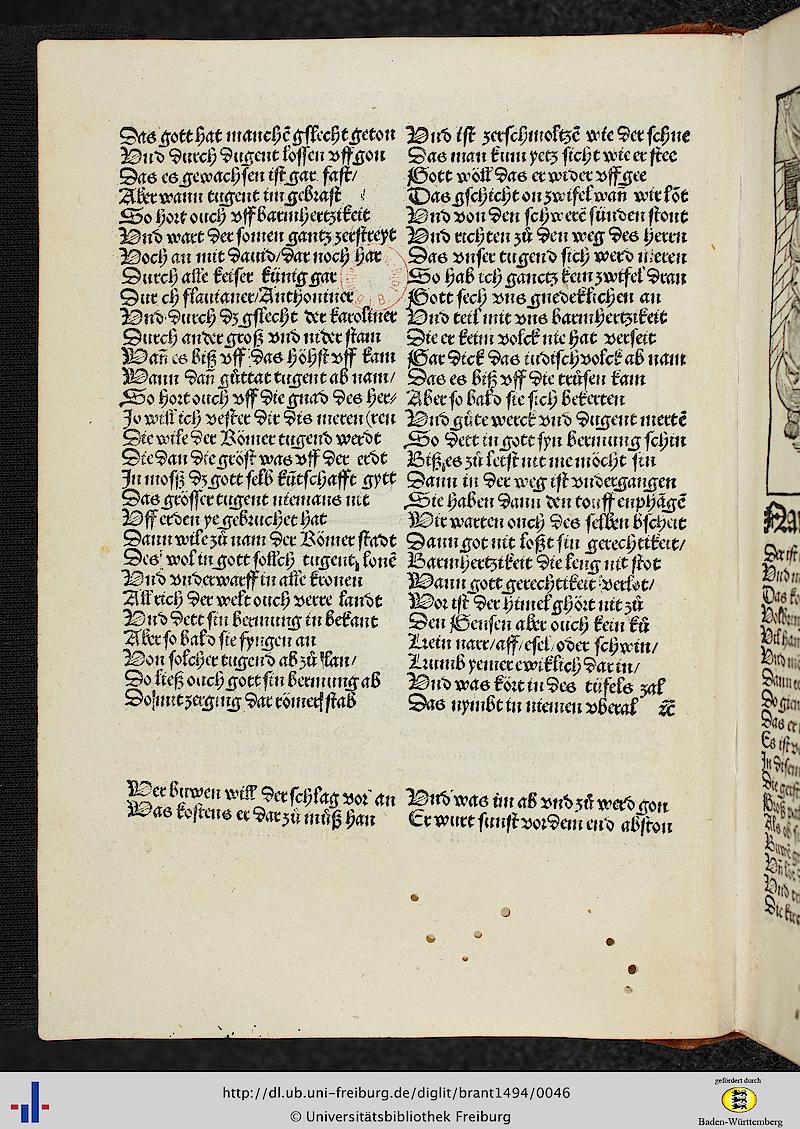 Das gott hat manchē gslecht geton
Vnd durch dugent lossen vff gon
Das es gewachsen ist gar fast/
Aber wann tugent im gebrast
So hort ouch vff barmhertzikeit
Vnd wart der somen gantz zerstreyt
Noch an mit dauid/dar noch har
Durch alle keiser künig gar
Dur ch flauianer/Anthoniner
Vnd durch dz gslecht der karoliner
Durch ander groß vnd nider stam
Wan̄ es biß vff das höhst vff kam
Wann dan̄ gůttat tugent ab nam/
So hort ouch vff die gnad des her/
Jo will ich vester dir dis meren (ren
Die wile der Römer tugend werdt
Die dan die gröst was vff der erdt
In mosß dz gott selb kütschafft gytt
Das grösser tugent niemans nit
Vff erden ye gebruchet hat
Dann wile zů nam der Römer stadt
Des wol in gott sollch tugent lonē
Vnd vnderwarff in alle kronen
All rich der welt ouch verre landt
Vnd dett sin bermung in bekant
Aber so bald sie fyngen an
Von solcher tugend ab zů lan/
Do ließ ouch gott sin bermung ab
Do mit zerging dar römer stab
Wer buwen will der schlag vor an
Was kostens er dar zů můß han
Vnd ist zerschmoltzē wie der schne
Das man kum yetz sicht wie er stee
Gott wöll das er wider vff gee
Das gschicht on zwifel wan̄ wir lōt
Vnd von den schwerē sünden stont
Vnd richten zů den weg des herrn
Das vnser tugend sich werd meren
So hab ich ganctz kein zwifel dran
Gott sech vns gnedeklichen an
Vnd teil mit vns barmhertzikeit
Die er keim volck nie hat verseit
Gar dick das iudisch volck ab nam
Das es biß vff die trůsen kam
Aber so bald sie sich bekerten
Vnd gůte werck vnd dugent mertē
So dett in gott syn bermung schin
Biß es zů letst nit me möcht sin
Dann in der weg ist vndergangen
Sie haben dann den touff enphāgē
Wir warten ouch des selben bscheit
Dann got nit loßt sin gerechtikeit/
Barmhertzikeit die leng nit stot
Wann gott gerechtikeit verlot/
Vor ist der himel ghört nit zů
Den Gensen aber ouch kein ků
Kein narr/aff/esel/oder schwin/
Kumb yemer ewiklich dar in/
Vnd was kört in des tüfels zal
Das nymbt in niemen vberal ⁊c̄
Vnd was im ab vnd zů werd gon
Er wurt sunst vor dem end abston
http://dl.ub.uni-freiburg.de/diglit/brant1494/0046
© Universitätsbibliothek Freiburg
gefördert durch
Baden-Württemberg